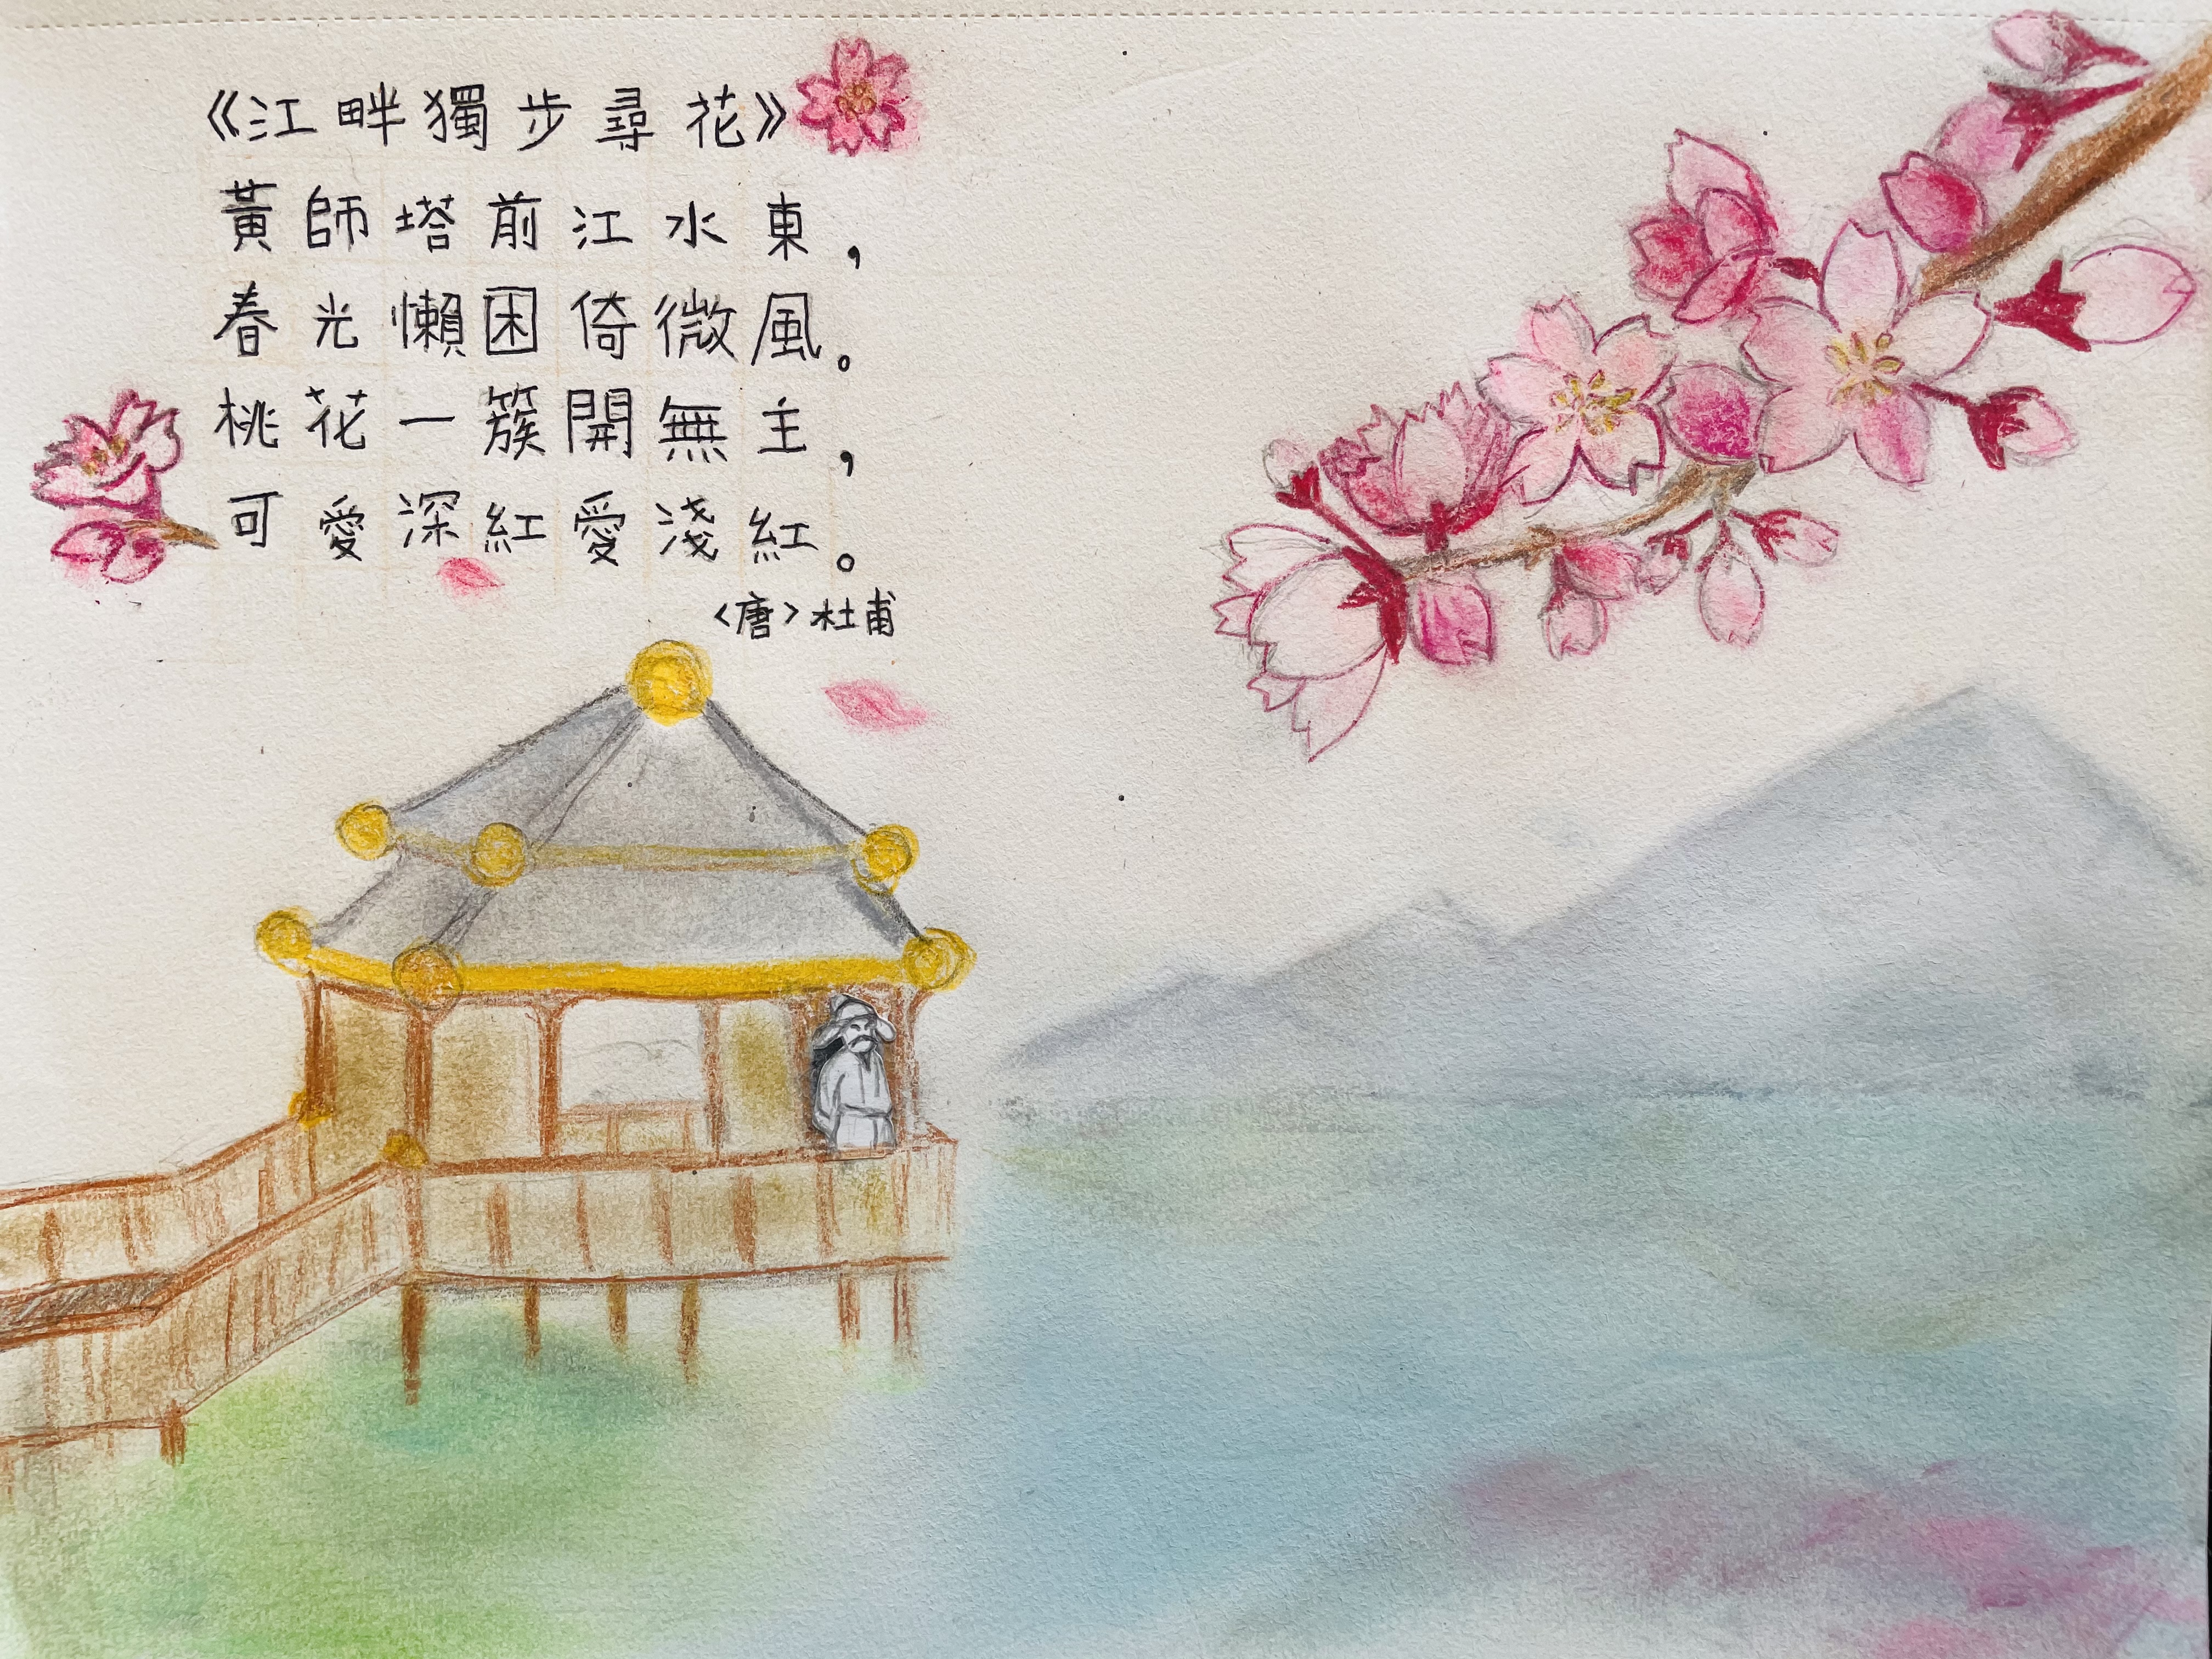 《江畔獨步尋花》
黃師塔前江水東，
春光懶困倚微風。
桃花一簇開無主，
可愛深紅愛淺紅。
<唐>杜甫